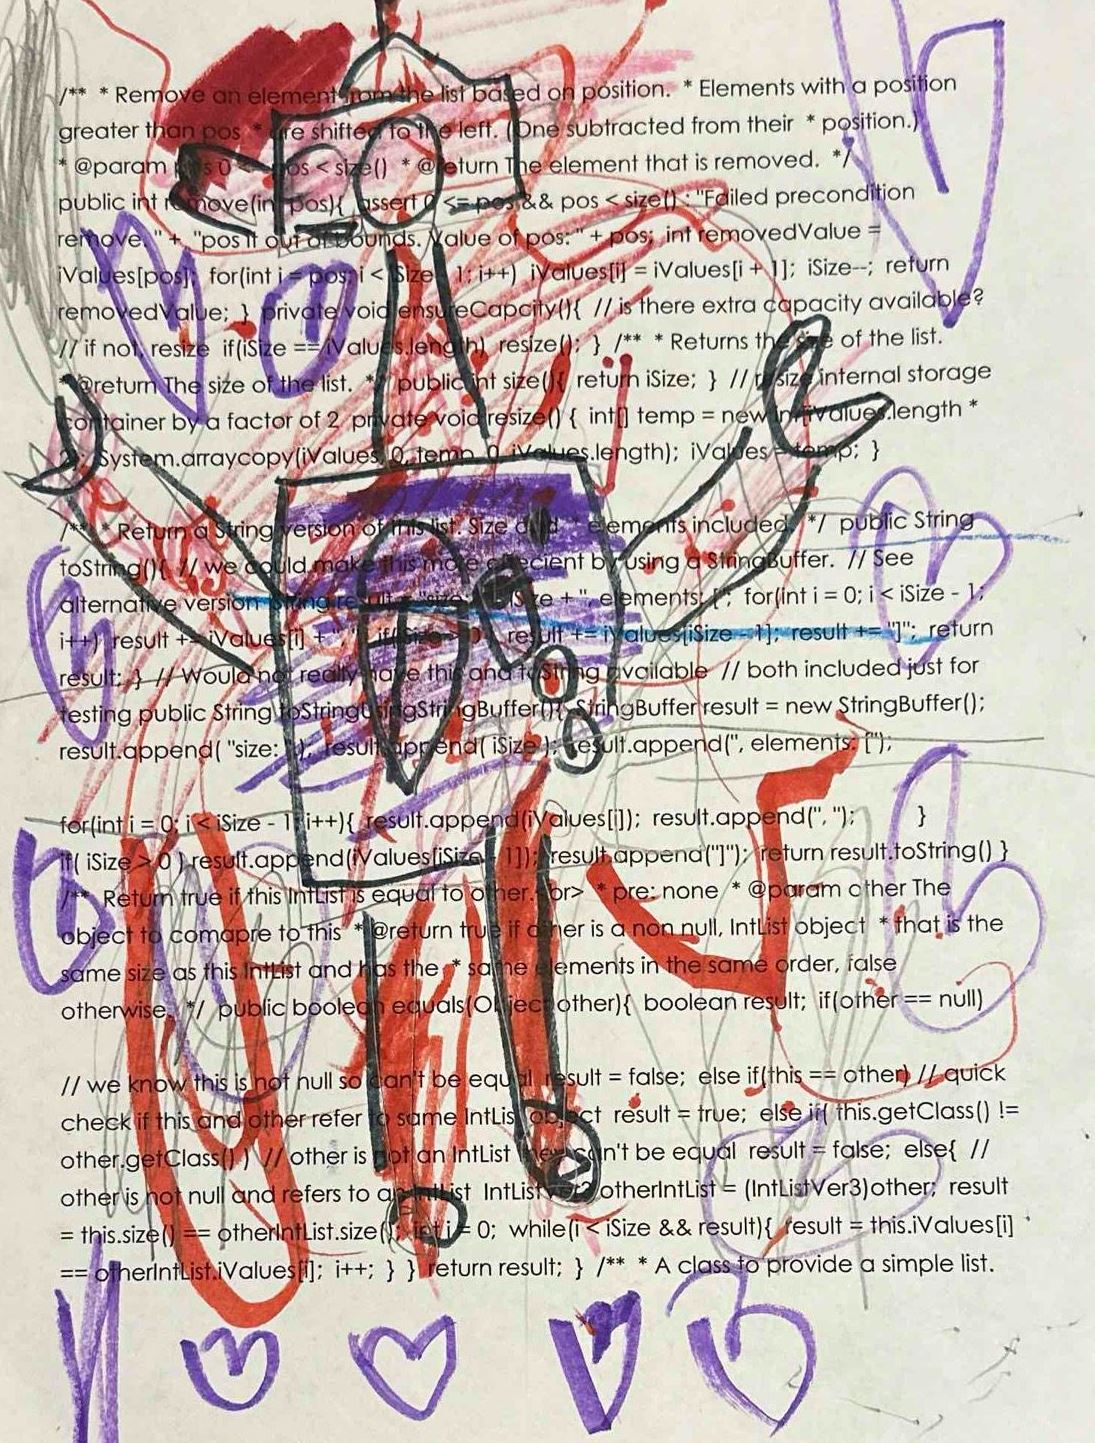 /** * Remove an element from the list based on position. * Elements with a position
greater than pos * are shifted to the left. (One subtracted from their * position.)
* @param pos 0 <= pos < size() * @return The element that is removed. */
public int remove(int pos){ assert 0 <= pos && pos < size() : "Failed precondition
remove. " + "pos it out of bounds. Value of pos: " + pos; int removedValue =
iValues[pos]; for(int i = pos; i < iSize - 1; i++) iValues[i] = iValues[i + 1]; iSize--; return
removedValue; } private void ensureCapcity(){ // is there extra capacity available?
// if not, resize if(iSize == iValues.length) resize(); } /** * Returns the size of the list.
* @return The size of the list. */ public int size(){ return iSize; } // resize internal storage
container by a factor of 2 private void resize() { int[] temp = new int[iValues.length *
2]; System.arraycopy(iValues, 0, temp, 0, iValues.length); iValues = temp; }
/** * Return a String version of this list. Size and * elements included. */ public String
toString(){ // we could make this more effecient by using a StringBuffer. // See
alternative version String result = "size: " + iSize + ", elements: ["; for(int i = 0; i < iSize - 1;
i++) result += iValues[i] + ", "; if(iSize > 0 ) result += iValues[iSize - 1]; result += "]"; return
result; } // Would not really have this and toString available // both included just for
testing public String toStringUsingStringBuffer(){ StringBuffer result = new StringBuffer();
result.append( "size: " ); result.append( iSize ); result.append(", elements: [");
for(int i = 0; i < iSize - 1; i++){ result.append(iValues[i]); result.append(", "); }
if( iSize > 0 ) result.append(iValues[iSize - 1]); result.append("]"); return result.toString() }
/** Return true if this IntList is equal to other.<br> * pre: none * @param other The
object to comapre to this * @return true if other is a non null, IntList object * that is the
same size as this IntList and has the * same elements in the same order, false
otherwise. */ public boolean equals(Object other){ boolean result; if(other == null)
// we know this is not null so can't be equal result = false; else if(this == other) // quick
check if this and other refer to same IntList object result = true; else if( this.getClass() !=
other.getClass() ) // other is not an IntList they can't be equal result = false; else{ //
other is not null and refers to an IntList IntListVer3 otherIntList = (IntListVer3)other; result
= this.size() == otherIntList.size(); int i = 0; while(i < iSize && result){ result = this.iValues[i]
== otherIntList.iValues[i]; i++; } } return result; } /** * A class to provide a simple list.